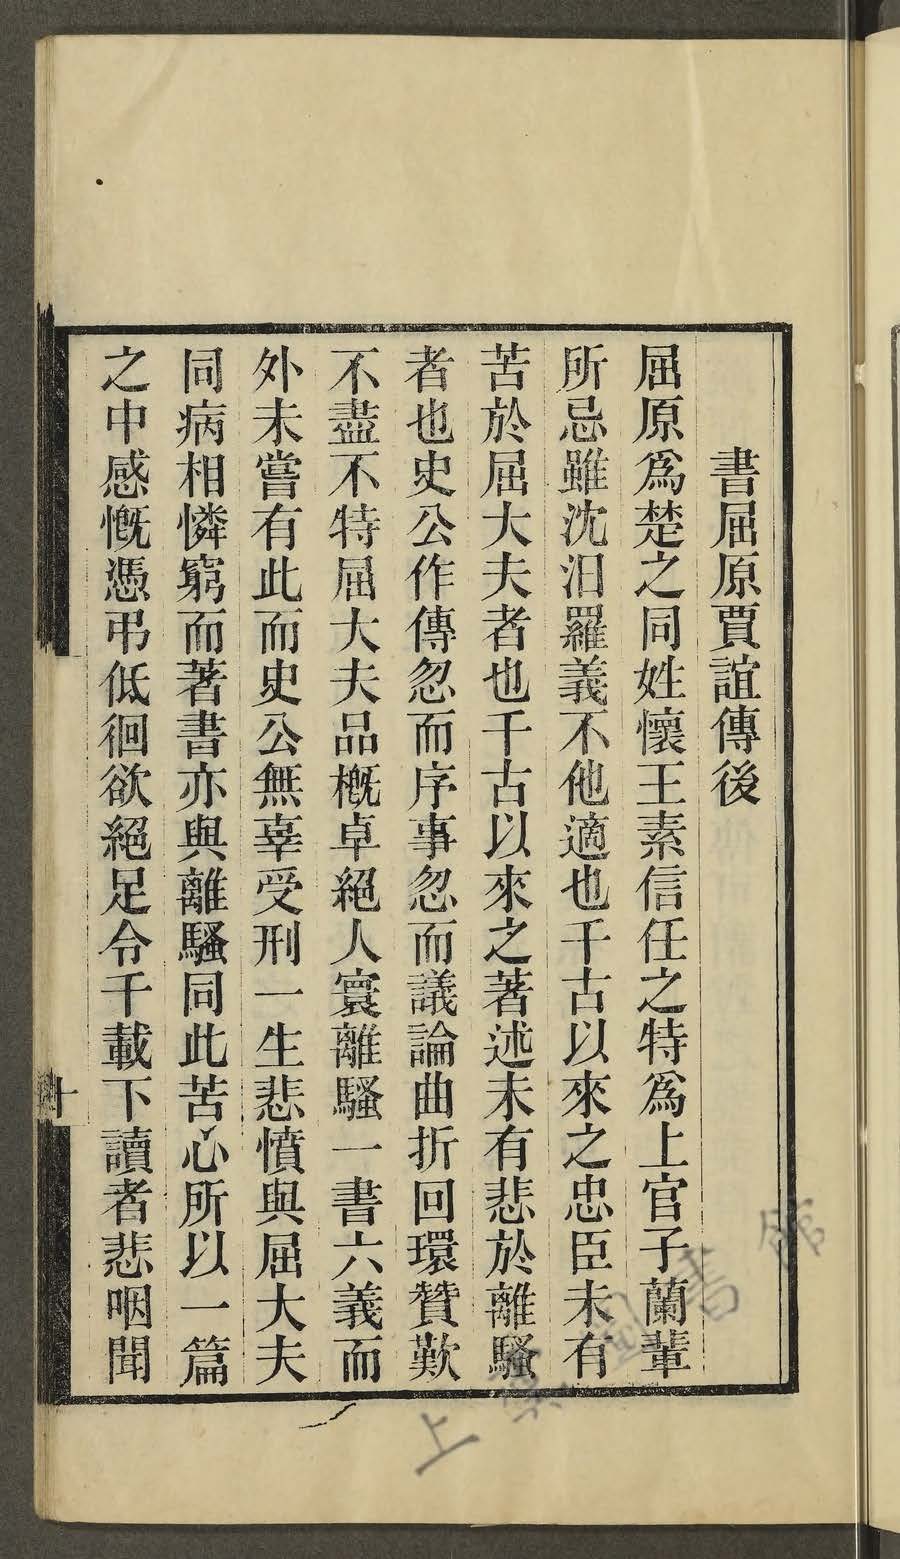 書屈原賈誼傳後
屈原爲楚之同姓懷王素信任之特爲上官子蘭輩
所忌雖沈汨羅義不他適也千古以來之忠臣未有
苦於屈大夫者也千古以來之著述未有悲於離騷
者也史公作傳忽而序事忽而議論曲折回環贊歎
不盡不特屈大夫品概卓絕人寰離騷一書六義而
外未嘗有此而史公無辜受刑一生悲憤與屈大夫
同病相憐窮而著書亦與離騷同此苦心所以一篇
之中感慨憑弔低徊欲絕足令千載下讀者悲咽聞
十
上海圖書館